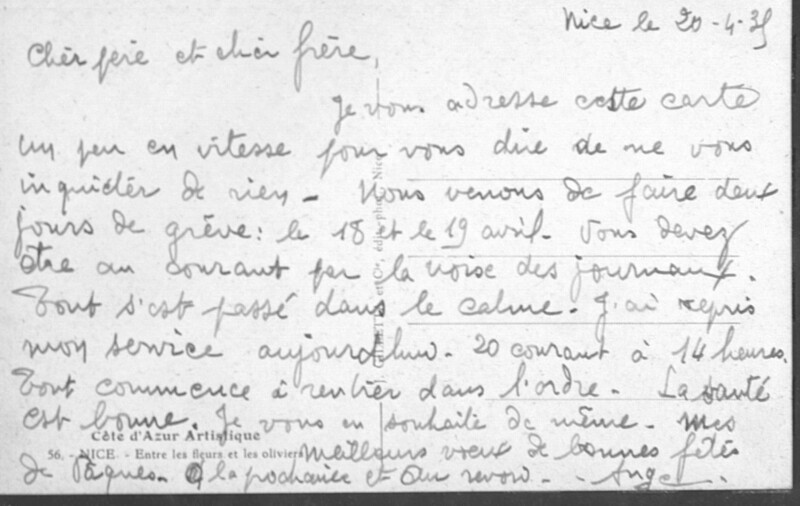 Nice le 20-4-35
Cher père et cher frère,
Je vous adresse cette carte
un peu en vitesse pour vous dire de ne vous
inquiéter de rien - Nous venons de faire deux
jours de grève: le 18 et le 19 avril. Vous devez
être au courant par la voise des journaux.
Tout s'est passé dans le calme. J'ai repris
mon service aujourd'hui - 20 courant à 14 heures.
Tout commence à rentrer dans l'ordre - La santé
est bonne. Je vous en souhaite de même - Mes
Côte d'Azur Artistique
56. - NICE - Entre les fleurs et les oliviers
meilleurs vœux de bonnes fêtes
de Pâques. A la prochaine et au revoir. - Ange.
et Cie, édit. phot. Nice